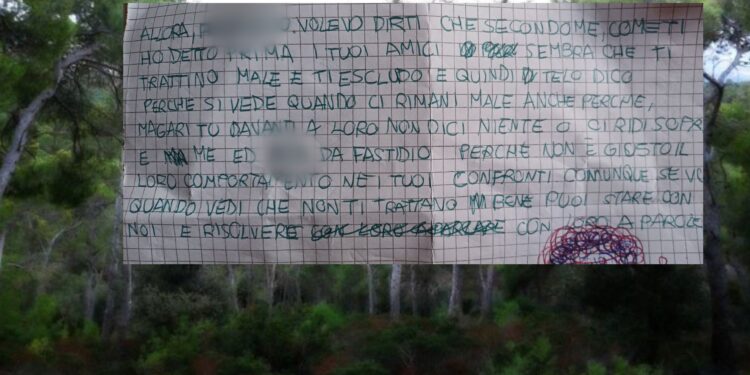 ALLORA, VOLEVO DIRTI CHE SECONDOME, COME TI
HO DETTO PRIMA I TUOI AMICI SEMBRA CHE TI
TRATTINO MALE E TI ESCLUDO E QUINDI TE LO DICO
PERCHE SI VEDE QUANDO CI RIMANI MALE ANCHE PERCHE,
MAGARI TU DAVANTI A LORO NON DICI NIENTE O CI RIDI SOPRA
E ME ED DA FASTIDIO PERCHE NON E GIUSTO IL
LORO COMPORTAMENTO NEI TUOI CONFRONTI COMUNQUE SE VUOI
QUANDO VEDI CHE NON TI TRATTANO BENE PUOI STARE CON
NOI E RISOLVERE CON LORO A PAROLE